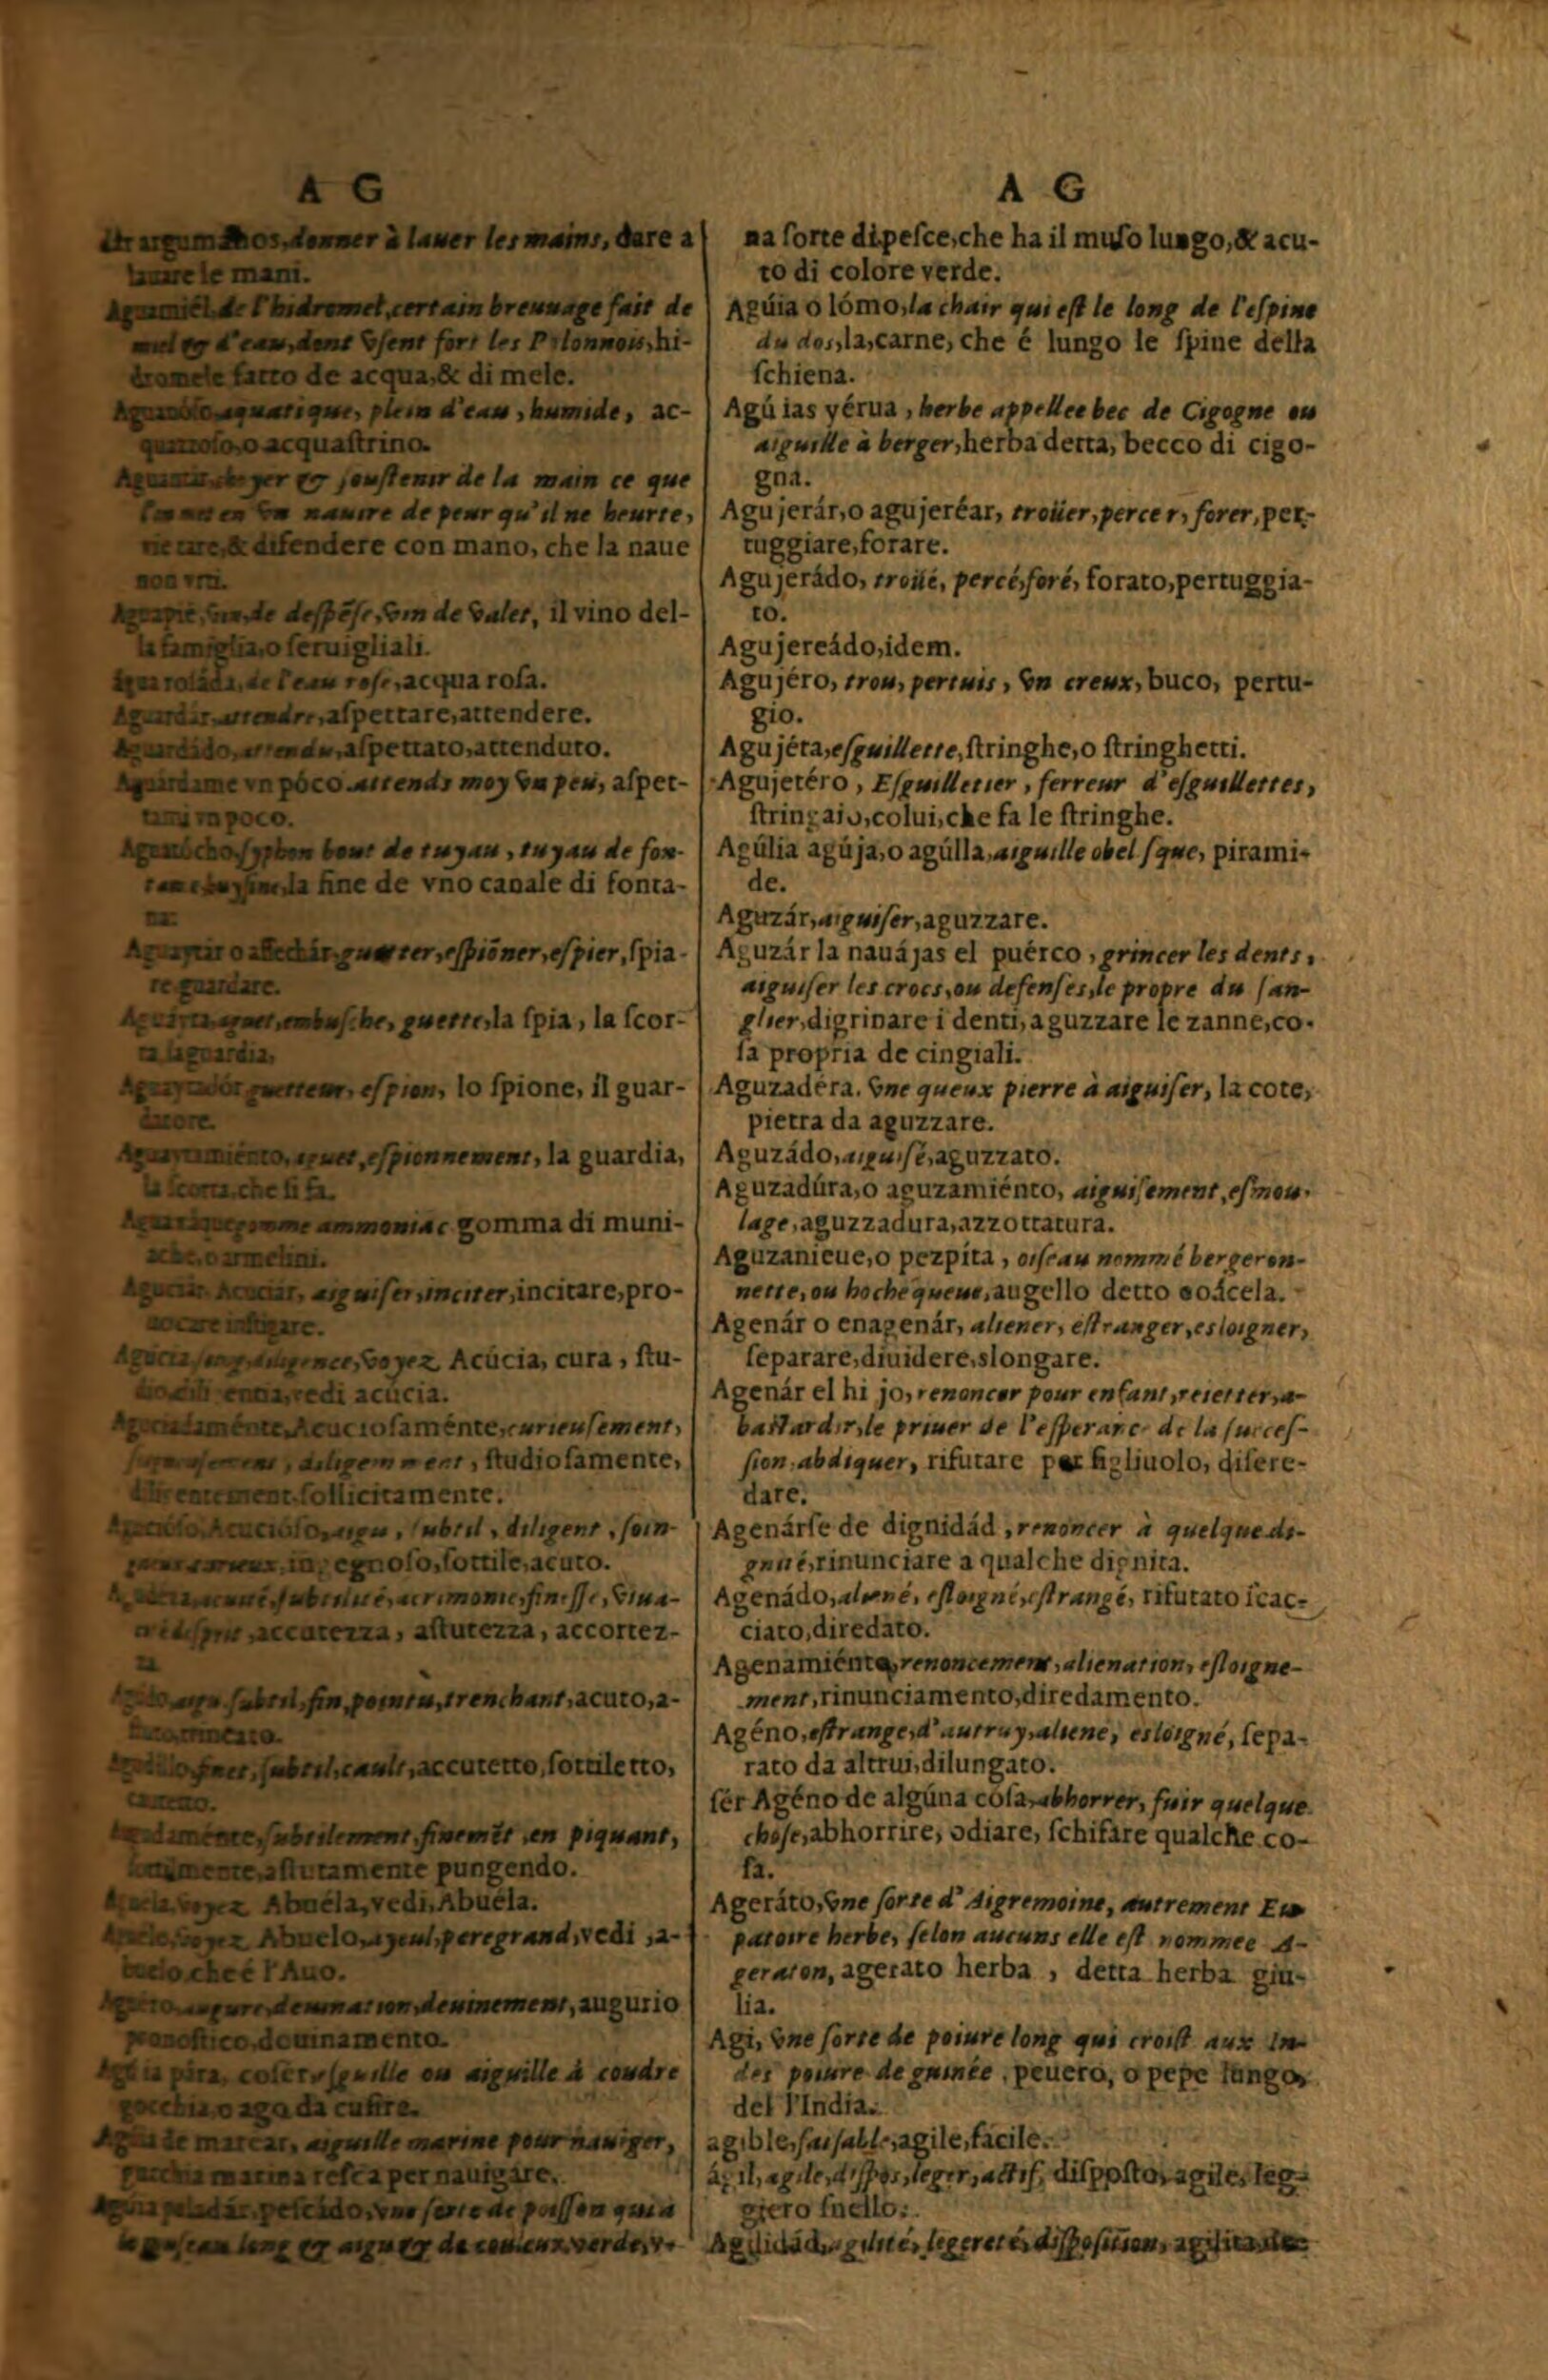 A G
donner à lauer les mains, dare a
lauare le mani.
Aguamiél, de l'hidromel, certain breuuage fait de
miel & d'eau, dont vsent fort les Polonnois, hi-
dromele fatto de acqua, & di mele.
aquatique, plein d'eau, humide, ac-
quazzoso, o acquaſtrino.
& ſouſtenir de la main ce que
en vn nauire de peur qu'il ne heurte,
& difendere con mano, che la naue
non vrti.
Aguapié, vin de deſpẽſe, vin de valet, il vino del-
la famiglia, o ſeruigliali.
água roſáda, de l'eau roſe, acqua roſa.
Aguardár, attendre, aſpettare, attendere.
Aguardádo, attendu, aſpettato, attenduto.
Aguárdame vn póco. attends moy vn peu, aſpet-
tami vn poco.
ſyphon bout de tuyau, tuyau de fon-
la fine de vno canale di fonta-
na.
Aguaytár o aſſechár, guetter, eſpiõner, eſpier, ſpia-
re guardare.
aguet, embuſche, guette, la ſpia, la ſcor-
ta la guardia,
Aguaytadór guetteur, eſpion, lo ſpione, il guar-
datore.
Aguaytamiénto, aguet, eſpionnement, la guardia,
la ſcorta, che ſi fa.
gomme ammoniac gomma di muni-
o armelini.
Aguciár. Acuciár, aiguiſer, inciter, incitare, pro-
uocare inſtigare.
Agúcia, diligence, voyez Acúcia, cura, ſtu-
vedi acúcia.
Acucioſaménte, curieuſement,
diligemment, ſtudioſamente,
ſollicitamente.
Acucióſo, aigu, ſubtil, diligent, ſoin-
ingegnoſo, ſottile, acuto.
ſubtilité, acrimonie, fineſſe, viua-
accutezza, aſtutezza, accortez-
za
aigu ſubtil, fin, pointu, trenchant, acuto, a-
ſtuto,
ſubtil, cault, accutetto, ſottiletto,
ſubtilement, finemẽt, en piquant,
aſtutamente pungendo.
voyez Abuéla, vedi, Abuéla.
voyez Abuelo, ayeul, peregrand, vedi, a-
buelo, che é l'Auo.
augure, deuination, deuinement, augurio
pronoſtico, deuinamento.
eſguille ou aiguille à coudre
gocchia, o ago da cuſire.
Agúia de marcar, aiguille marine pour nauiger,
marina reſca per nauigáre.
peſcádo, vne ſorte de poiſſon qui a
le muſeau long & aigu & de couleur verde, v-
A G
na ſorte di peſce, che ha il muſo lungo, & acu-
to di colore verde.
Agúia o lómo, la chair qui eſt le long de l'eſpine
du dos, la, carne, che é lungo le ſpine della
ſchiena.
Agúias yérua, herbe appellee bec de Cigogne ou
aiguille à berger, herba detta, becco di cigo-
gna.
Agujerár, o agujeréar, troüer, percer, forer, per-
tuggiare, forare.
Agujerádo, troüé, percé, foré, forato, pertuggia-
to.
Agujereádo, idem.
Agujéro, trou, pertuis, vn creux, buco, pertu-
gio.
Agujéta, eſguillette, ſtringhe, o ſtringhetti.
Agujetéro, Eſguilletier, ferreur d'eſguillettes,
ſtringaio, colui, che fa le ſtringhe.
Agúlia agúja, o agúlla, aiguille obeliſque, pirami-
de.
Aguzár, aiguiſer, aguzzare.
Aguzár la nauájas el puérco, grincer les dents,
aiguiſer les crocs, ou defenſes, le propre du ſan-
glier, digrinare i denti, aguzzare le zanne, co-
ſa propria de cingiali.
Aguzadéra. vne queux pierre à aiguiſer, la cote,
pietra da aguzzare.
Aguzádo, aiguiſé, aguzzato.
Aguzadúra, o aguzamiénto, aiguiſement, eſmou-
lage, aguzzadura, azzottatura.
Aguzanieue, o pezpíta, oiſeau nommé bergeron-
nette, ou hochequeue, augello detto coácela.
Agenár o enagenár, aliener, eſtranger, esloigner,
ſeparare, diuidere, slongare.
Agenár el hijo, renoncer pour enfant, reietter, a-
baſtardir, le priuer de l'eſperance de la ſucceſ-
ſion, abdiquer, rifutare per figliuolo, diſere-
dare.
Agenárſe de dignidád, renoncer à quelque di-
gnité, rinunciare a qualche dignita.
Agenádo, aliené, eſloigné, eſtrangé, rifutato ſcac-
ciato, diredato.
Agenamiénto, renoncement, alienation, eſloigne-
ment, rinunciamento, diredamento.
Agéno, eſtrange, d'autruy, aliene, esloigné, ſepa-
rato da altrui, dilungato.
ſér Agéno de algúna cóſa, abhorrer, fuir quelque
choſe, abhorrire, odiare, ſchifare qualche co-
ſa.
Ageráto, vne ſorte d'Aigremoine, autrement Eu-
patoire herbe, ſelon aucuns elle eſt nommee A-
geraton, agerato herba, detta herba giu-
lia.
Agi, vne ſorte de poiure long qui croiſt aux In-
des poiure de guinée, peuero, o pepe lungo,
del l'India.
agible, faiſable, agile, facile.
ágil, agile, diſpos, leger, actif, diſpoſto, agile, leg-
giero ſnello.
Agilidád, agilité, legereté, diſpoſition, agilita,